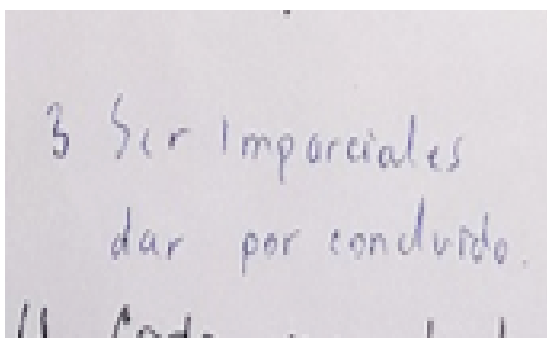 3 Ser Imparciales
dar por concluido.